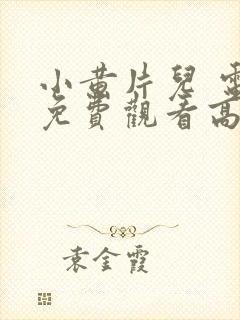 小黄片兒 電
免費觀看高
袁金霞